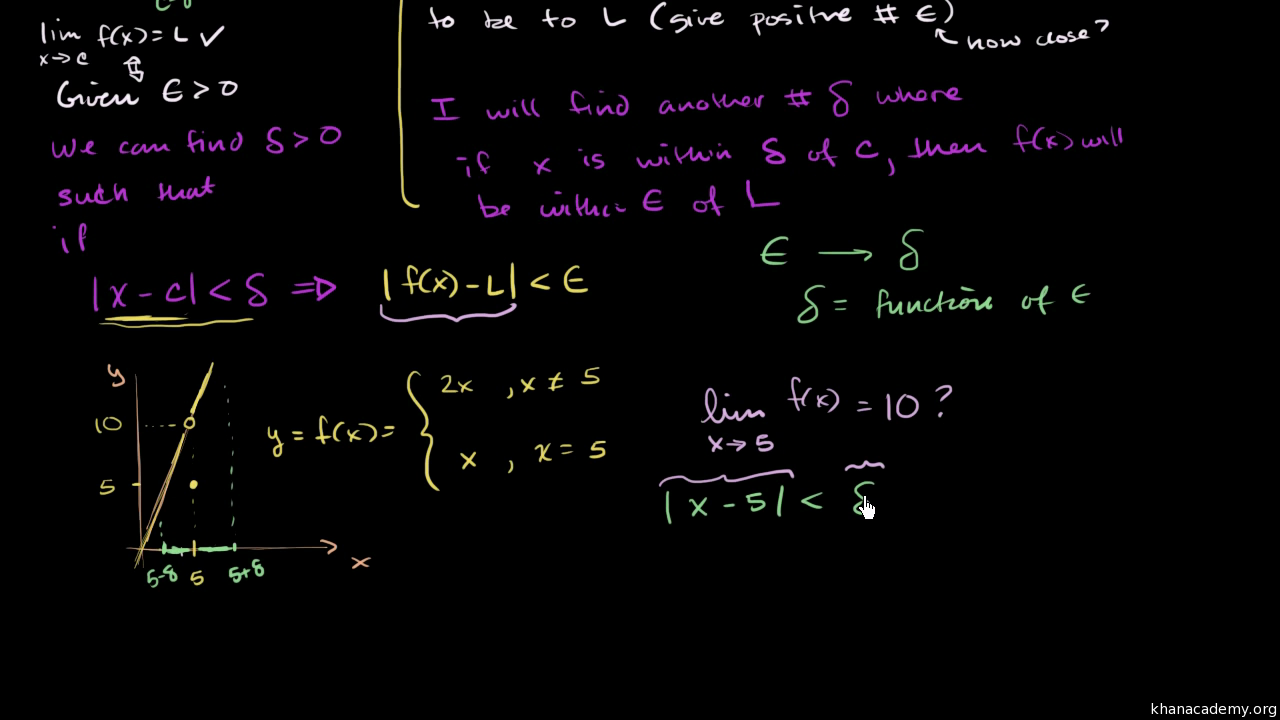 lim f(x) = L ✓
x→c
Given ϵ > 0
we can find δ > 0
such that
if
|x - c| < δ ⇒ |f(x) - L| < ϵ
to be to L (give positive # ϵ)
how close?
I will find another # δ where
if x is within δ of c, then f(x) will
be within ϵ of L
ϵ → δ
δ = function of ϵ
y
10
5
5-δ 5 5+δ
x
y = f(x) = { 2x , x ≠ 5
x , x = 5
lim f(x) = 10 ?
x→5
|x - 5| < δ
khanacademy.org